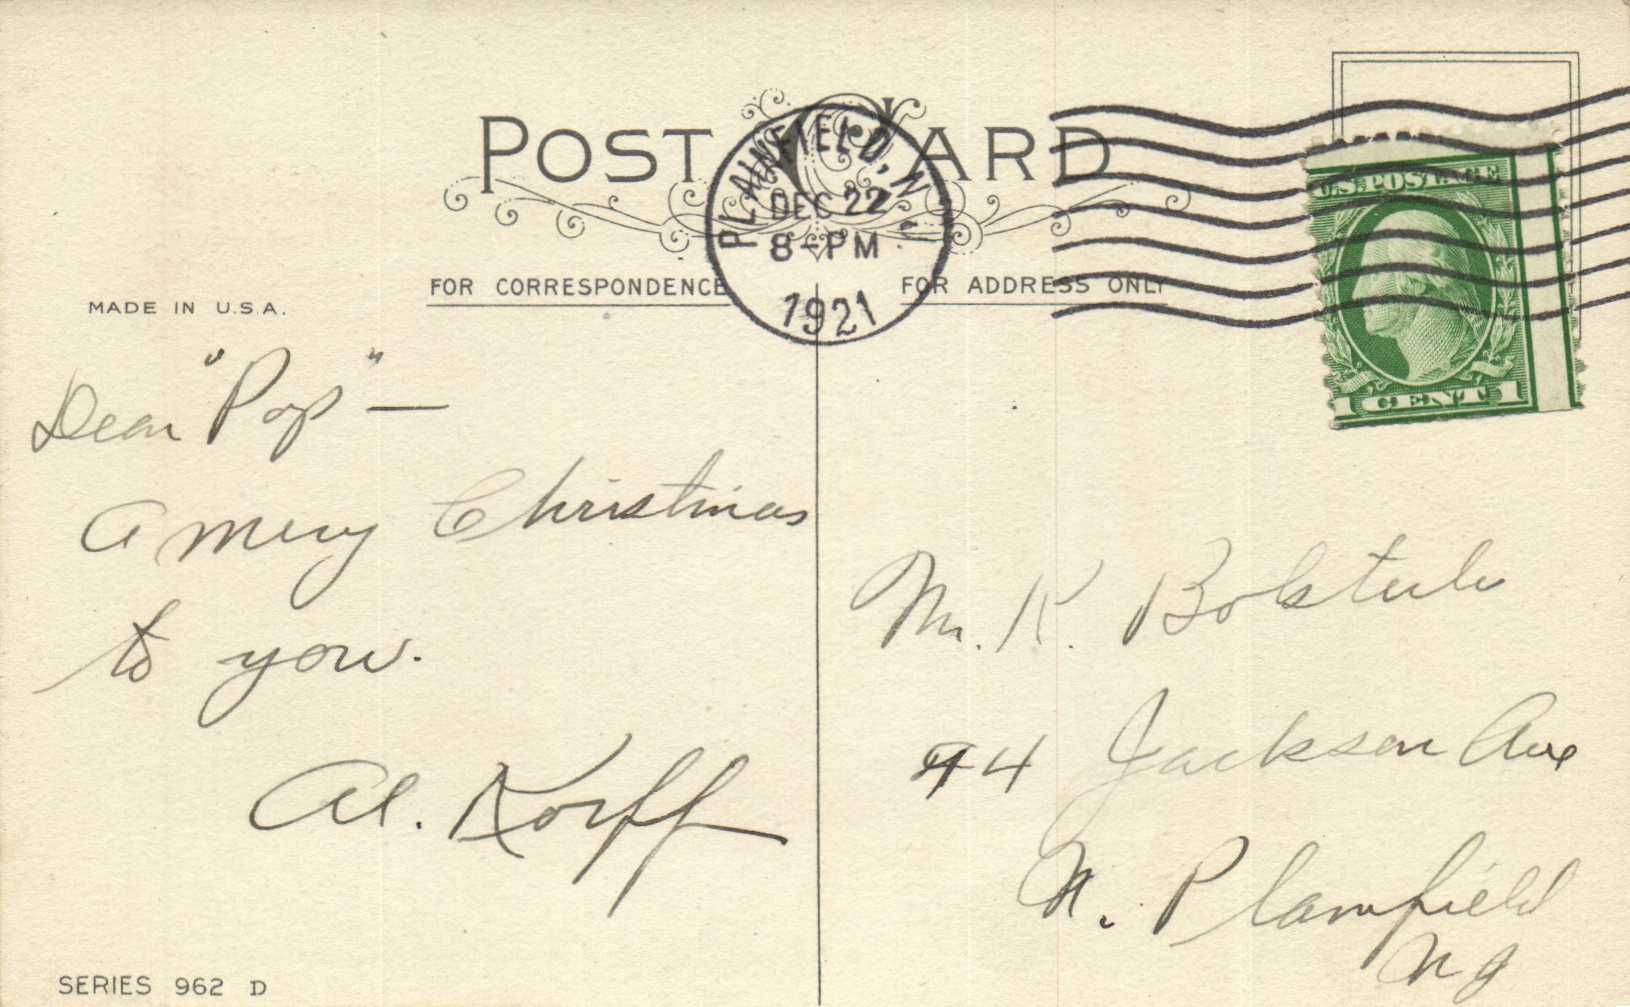 POST CARD
PLAINFIELD, N.J.
DEC 22
8-PM
1921
U.S. POSTAGE
1 CENT 1
FOR CORRESPONDENCE
FOR ADDRESS ONLY
MADE IN U.S.A.
Dear "Pop" —
A Merry Christmas
to you.
Al. Korff
Mr. K.
44 Jackson Ave
N. Plainfield
N J
SERIES 962 D